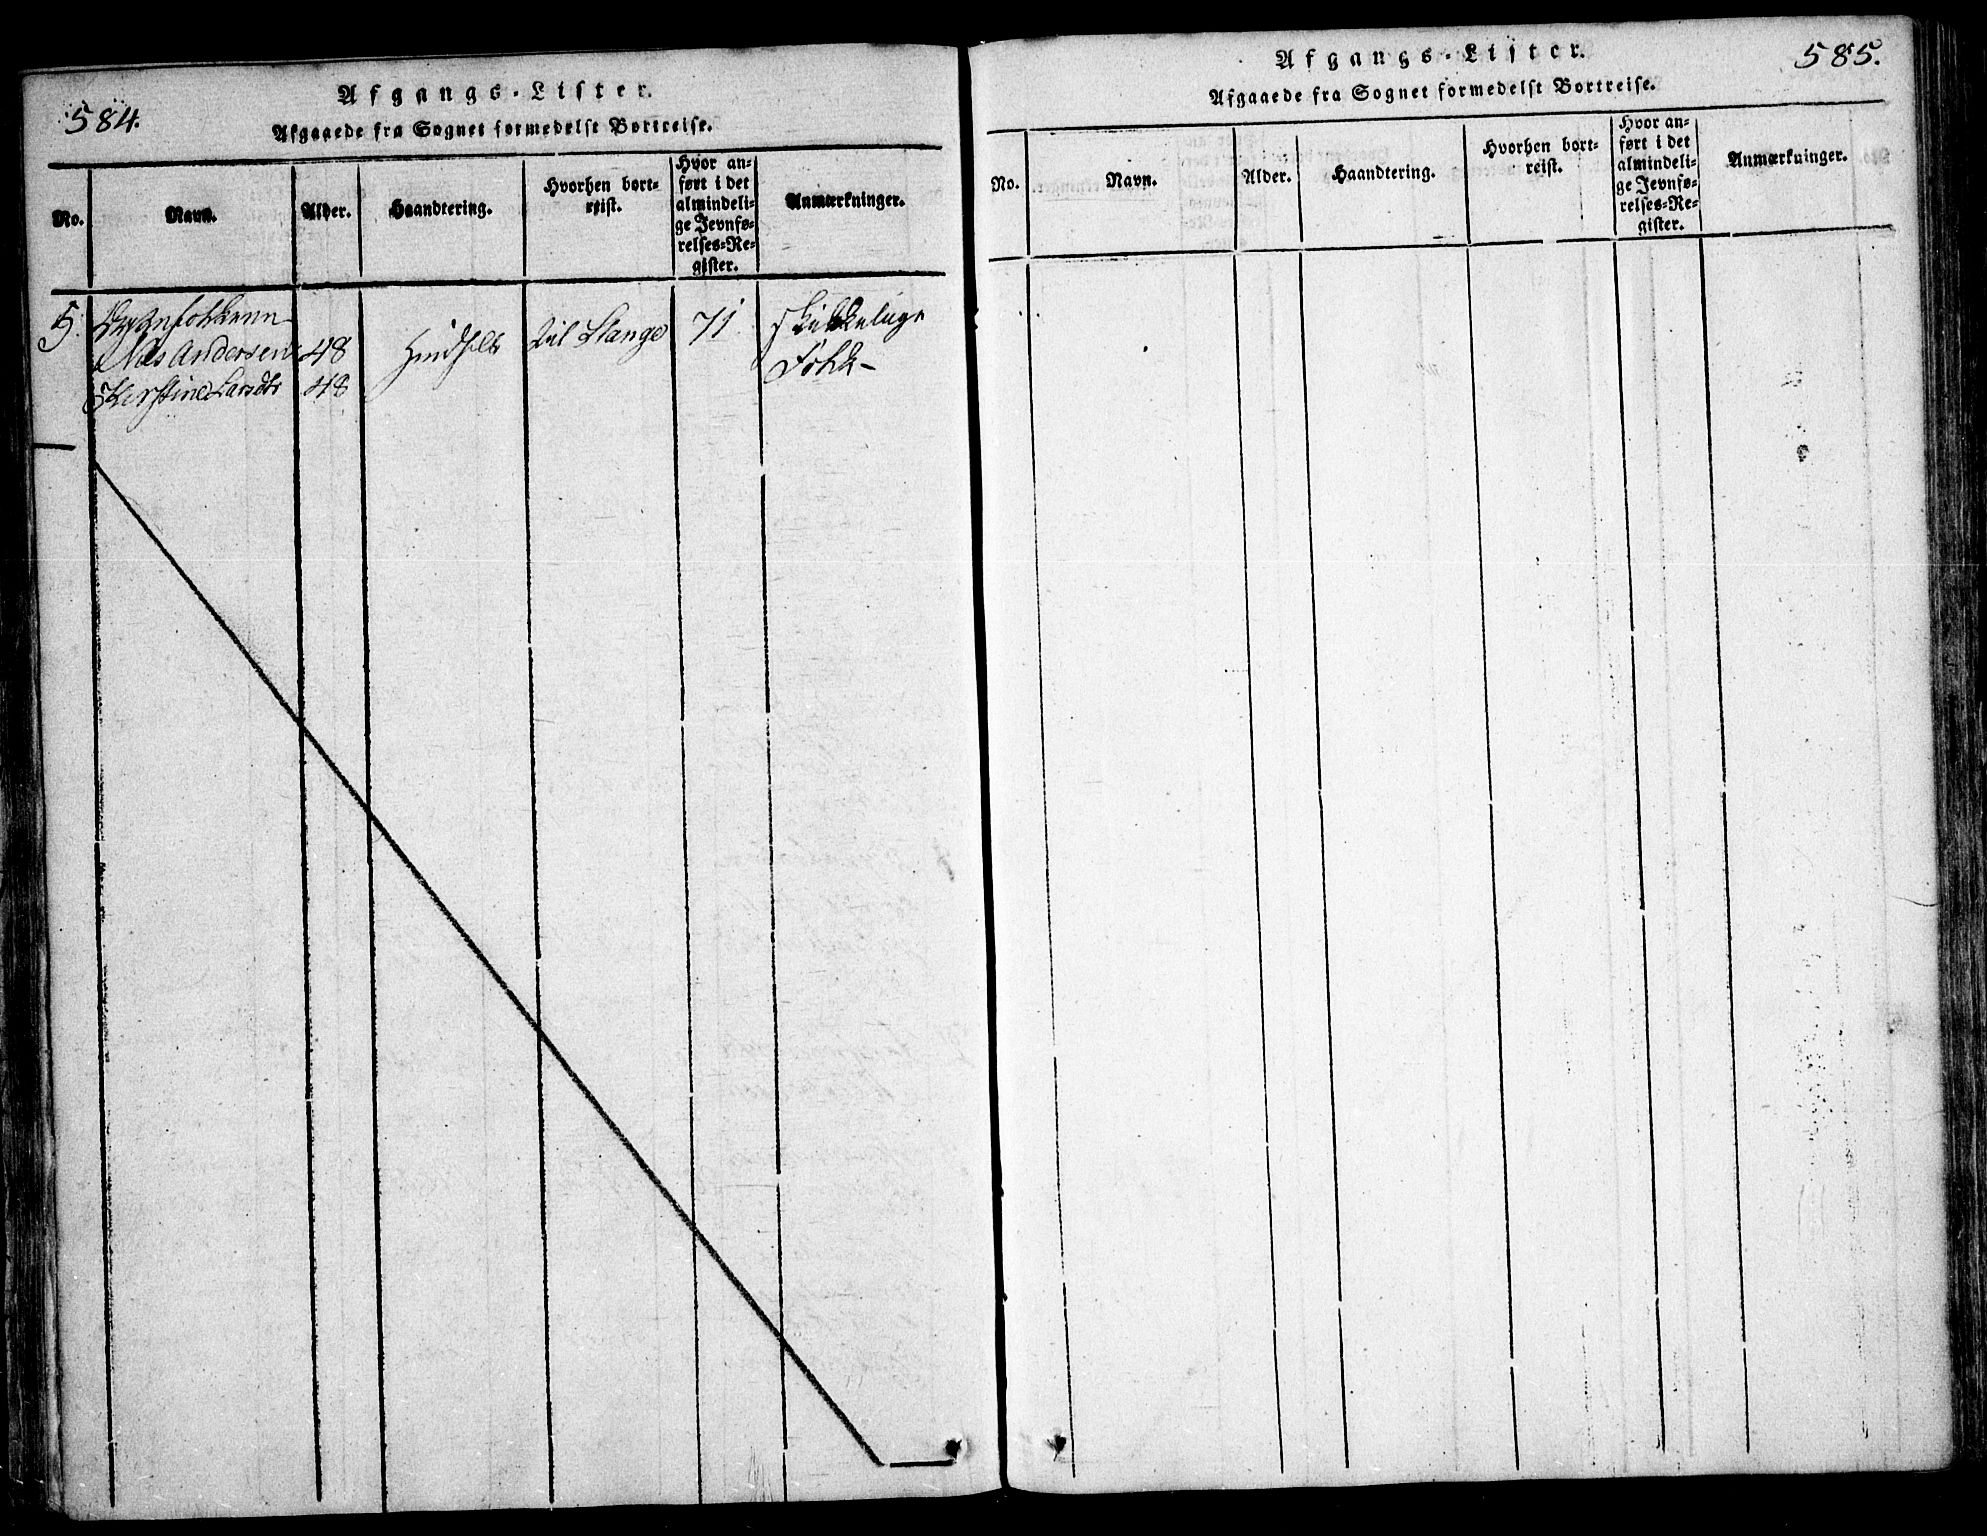 584.
Afgangs-Lister.
Afgaaede fra Sognet formedelst Bortreise.
No.
Navn.
Alder.
Haandtering.
Hvorhen bort-
reist.
Hvor an-
ført i det
almindeli-
ge Jevnfø-
relses-Re-
gister.
Anmærkninger.
5.
Nils Andersen 48
Kirstine Larsdtr 48
til Stange
71
skikkelige
Folk-
585.
Afgangs-Lister.
Afgaaede fra Sognet formedelst Bortreise.
No.
Navn.
Alder.
Haandtering.
Hvorhen bort-
reist.
Hvor an-
ført i det
almindeli-
ge Jevnfø-
relses-Re-
gister.
Anmærkninger.